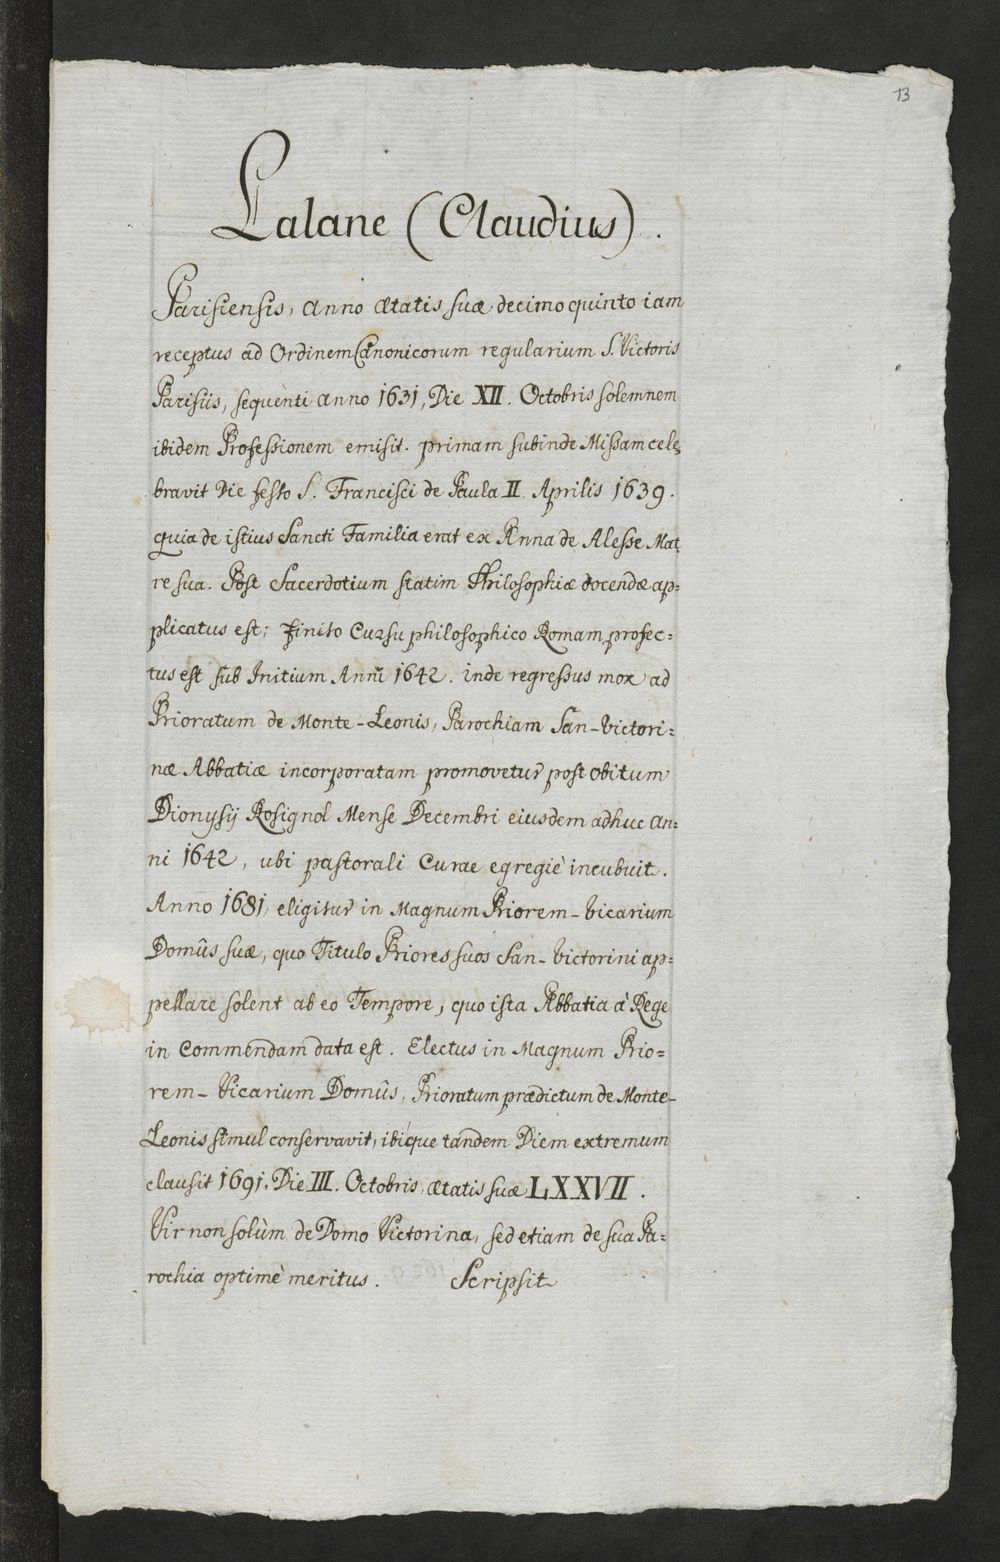 13
Lalane (Claudius).
Parisiensis, anno ætatis suæ decimo quinto iam
receptus ad Ordinem Canonicorum regularium S. Victoris
Parisiis, sequenti anno 1631, Die XII. Octobris solemnem
ibidem Professionem emisit. primam subinde Missam cele,
bravit Die festo S. Francisci de Paula II. Aprilis 1639.
quia de istius Sancti Familia erat ex Anna de Alesse Mat,
re sua. Post Sacerdotium statim Philosophiæ docendæ ap=
plicatus est; finito Cursu philosophico Romam profec=
tus est sub Initium Anni 1642. inde regressus mox ad
Prioratum de Monte-Leonis, Parochiam San-Victori=
næ Abbatiæ incorporatam promovetur post obitum
Dionysij Rosignol Mense Decembri eiusdem adhuc an=
ni 1642, ubi pastorali Curae egregiè incubuit.
Anno 1681, eligitur in Magnum Priorem-Vicarium
Domûs suæ, quo Titulo Priores suos San-Victorini ap=
pellare solent ab eo Tempore, quo ista Abbatia à Rege
in Commendam data est. Electus in Magnum Prio=
rem-Vicarium Domûs, Prioratum prædictum de Monte-
Leonis simul conservavit, ibique tandem Diem extremum
clausit 1691. Die III. Octobris, ætatis suæ LXXVII.
Vir non solùm de Domo Victorina, sed etiam de sua Pa=
rochia optimè meritus. Scripsit